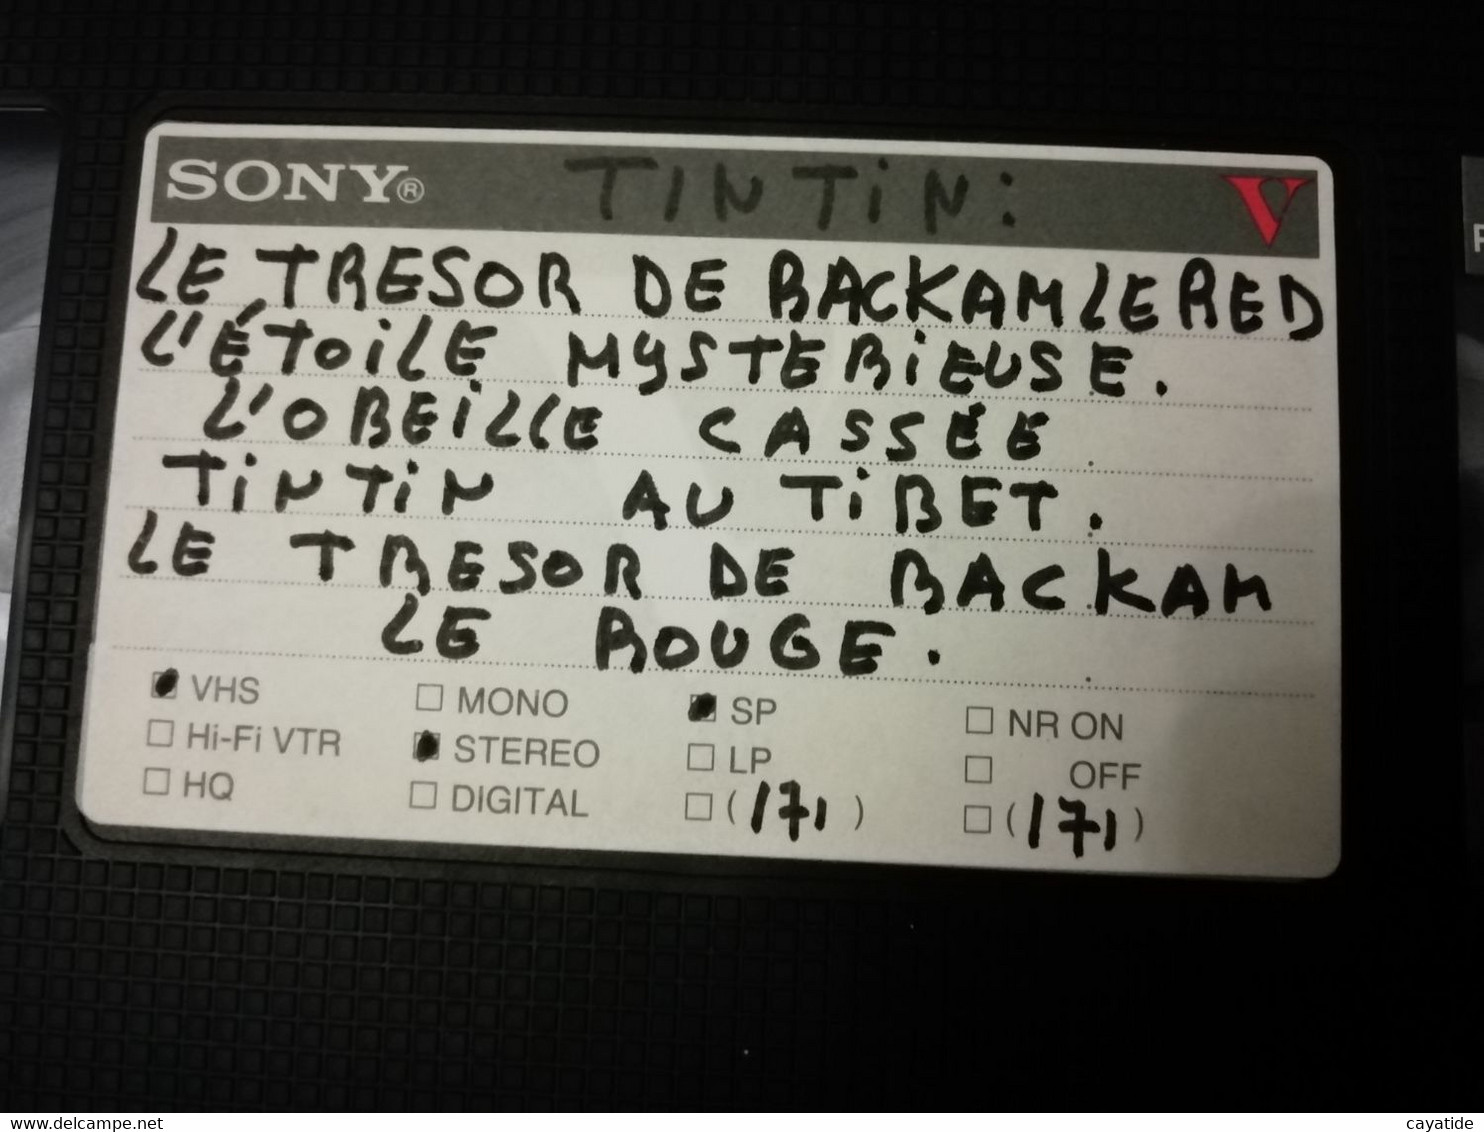 SONY® TINTIN:
V
LE TRESOR DE BACKAM LE RED
L'ÉTOILE MYSTERIEUSE.
L'OBEILLE CASSÉE
TINTIN AU TIBET.
LE TRESOR DE BACKAM
LE ROUGE.
VHS MONO SP NR ON
Hi-Fi VTR STEREO LP OFF
HQ DIGITAL (171) (171)
www.delcampe.net cayatide